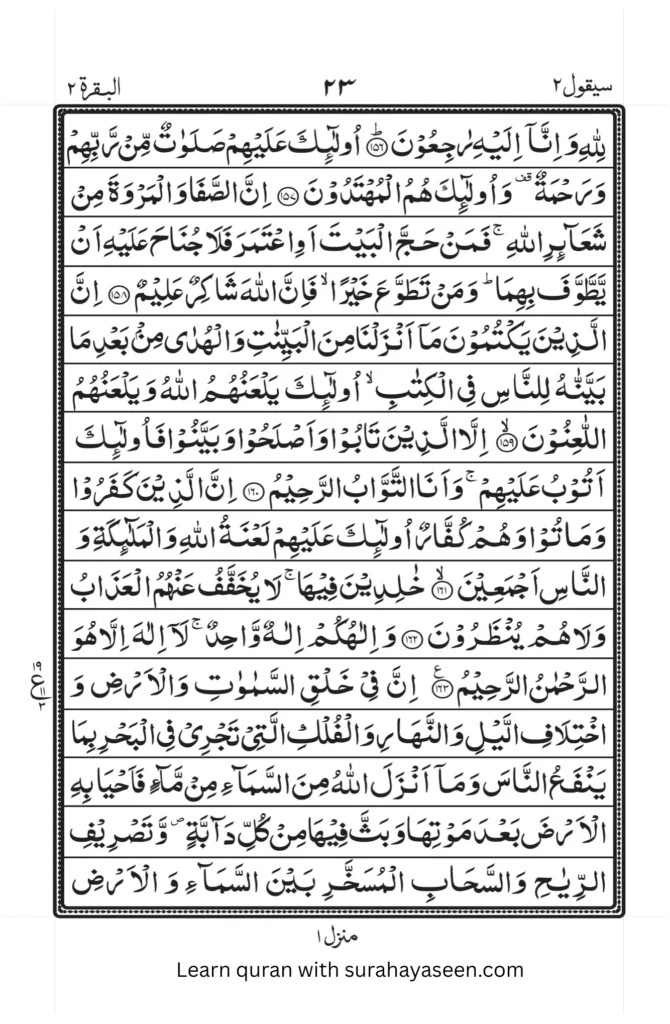 سيقول ٢ ٢٣ البقرة ٢
لِلّٰهِ وَاِنَّاۤ اِلَيْهِ رٰجِعُوْنَ ؕ﴿۱۵۶﴾ اُولٰٓئِكَ عَلَيْهِمْ صَلَوٰتٌ مِّنْ رَّبِّهِمْ
وَرَحْمَةٌ قف وَاُولٰٓئِكَ هُمُ الْمُهْتَدُوْنَ ﴿۱۵۷﴾ اِنَّ الصَّفَا وَالْمَرْوَةَ مِنْ
شَعَآئِرِ اللّٰهِ ۚ فَمَنْ حَجَّ الْبَيْتَ اَوِ اعْتَمَرَ فَلَا جُنَاحَ عَلَيْهِ اَنْ
يَّطَّوَّفَ بِهِمَا ؕ وَمَنْ تَطَوَّعَ خَيْرًا ۙ فَاِنَّ اللّٰهَ شَاكِرٌ عَلِيْمٌ ﴿۱۵۸﴾ اِنَّ
الَّذِيْنَ يَكْتُمُوْنَ مَاۤ اَنْزَلْنَا مِنَ الْبَيِّنٰتِ وَالْهُدٰى مِنْۢ بَعْدِ مَا
بَيَّنّٰهُ لِلنَّاسِ فِى الْكِتٰبِ ۙ اُولٰٓئِكَ يَلْعَنُهُمُ اللّٰهُ وَيَلْعَنُهُمُ
اللّٰعِنُوْنَ ۙ﴿۱۵۹﴾ اِلَّا الَّذِيْنَ تَابُوْا وَاَصْلَحُوْا وَبَيَّنُوْا فَاُولٰٓئِكَ
اَتُوْبُ عَلَيْهِمْ ۚ وَاَنَا التَّوَّابُ الرَّحِيْمُ ﴿۱۶۰﴾ اِنَّ الَّذِيْنَ كَفَرُوْا
وَمَاتُوْا وَهُمْ كُفَّارٌ اُولٰٓئِكَ عَلَيْهِمْ لَعْنَةُ اللّٰهِ وَالْمَلٰٓئِكَةِ وَ
النَّاسِ اَجْمَعِيْنَ ۙ﴿۱۶۱﴾ خٰلِدِيْنَ فِيْهَا ۚ لَا يُخَفَّفُ عَنْهُمُ الْعَذَابُ
وَلَا هُمْ يُنْظَرُوْنَ ﴿۱۶۲﴾ وَاِلٰهُكُمْ اِلٰهٌ وَّاحِدٌ ۚ لَاۤ اِلٰهَ اِلَّا هُوَ
الرَّحْمٰنُ الرَّحِيْمُ ﴿۱۶۳﴾ ع اِنَّ فِىْ خَلْقِ السَّمٰوٰتِ وَالْاَرْضِ وَ
۱۹ ع ۱۱ ۳
اخْتِلَافِ الَّيْلِ وَالنَّهَارِ وَالْفُلْكِ الَّتِىْ تَجْرِىْ فِى الْبَحْرِ بِمَا
يَنْفَعُ النَّاسَ وَمَاۤ اَنْزَلَ اللّٰهُ مِنَ السَّمَآءِ مِنْ مَّآءٍ فَاَحْيَا بِهِ
الْاَرْضَ بَعْدَ مَوْتِهَا وَبَثَّ فِيْهَا مِنْ كُلِّ دَآبَّةٍ ص وَّتَصْرِيْفِ
الرِّيٰحِ وَالسَّحَابِ الْمُسَخَّرِ بَيْنَ السَّمَآءِ وَالْاَرْضِ
منزل ١
Learn quran with surahayaseen.com